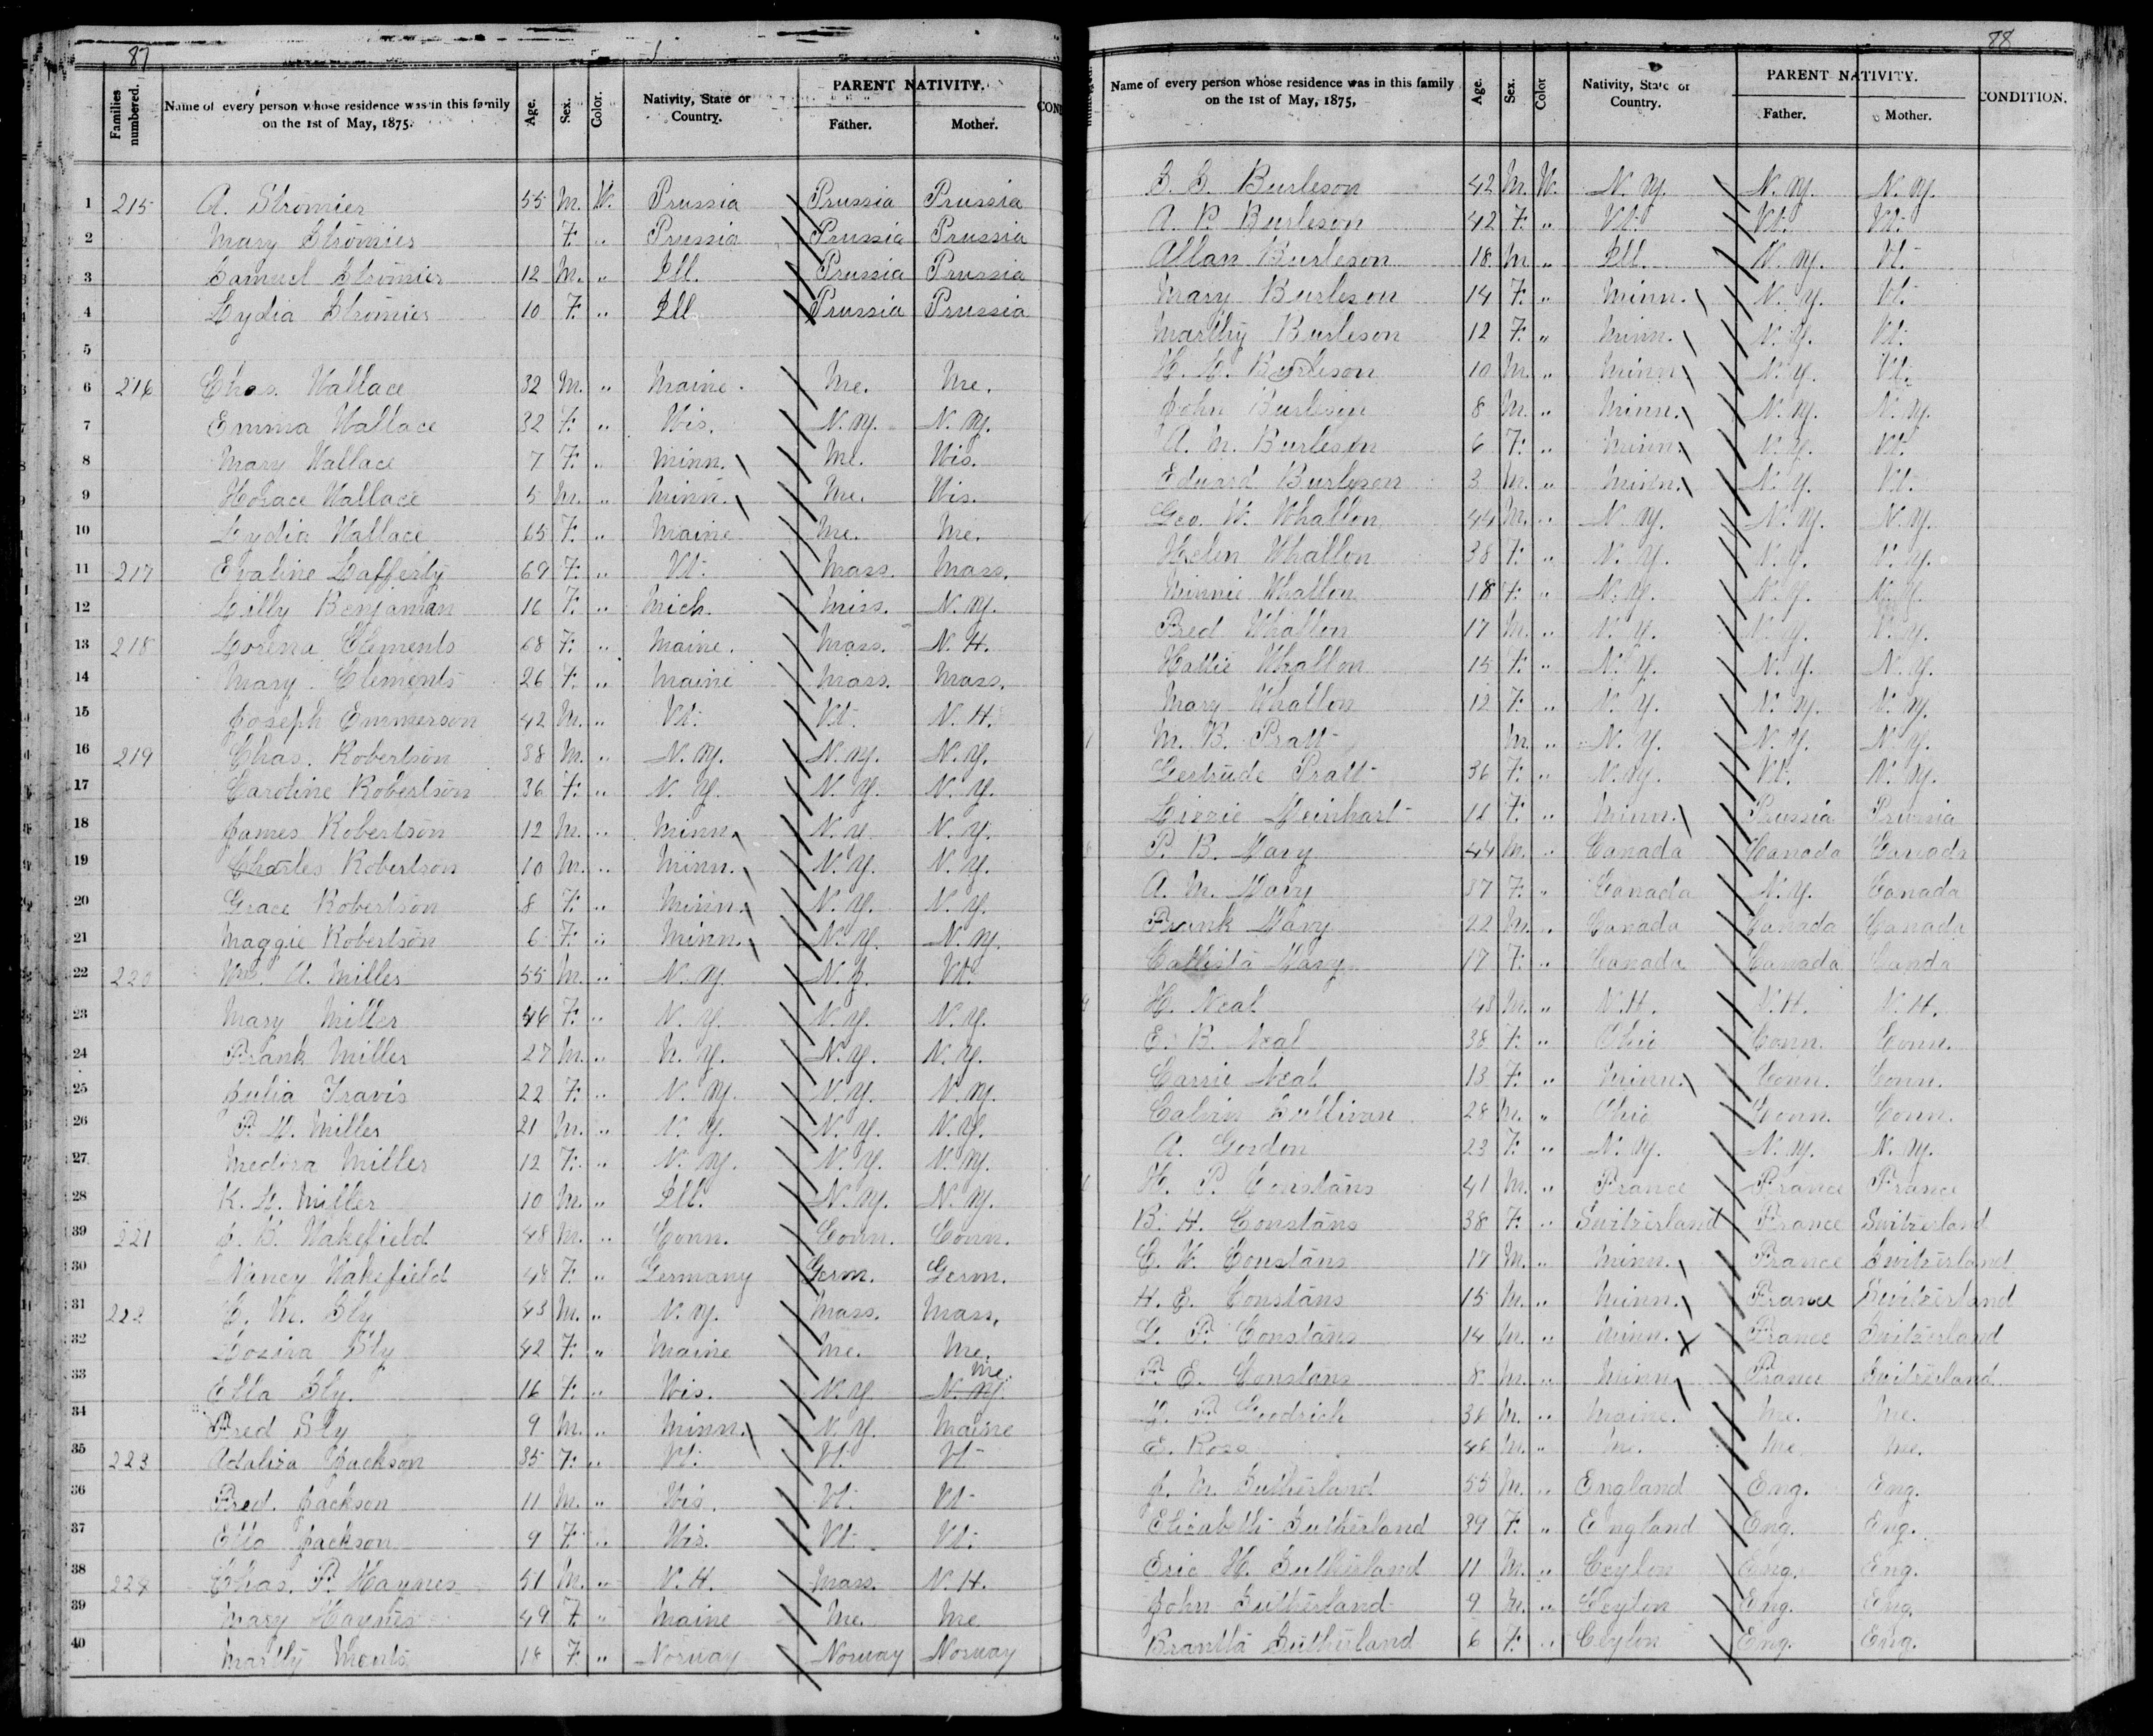 87
Families numbered. Name of every person whose residence was in this family on the 1st of May, 1875. Age. Sex. Color. Nativity, State or Country. PARENT NATIVITY. Father. Mother. CON
1 215 A. Stromier 55 M. W. Prussia Prussia Prussia
2 Mary Stromier F. " Prussia Prussia Prussia
3 Samuel Stromier 12 M. " Ill. Prussia Prussia
4 Lydia Stromier 10 F. " Ill Prussia Prussia
5
6 216 Chas. Wallace 32 M. " Maine. Me. Me.
7 Emma Wallace 32 F. " Wis. N. Y. N. Y.
8 Mary Wallace 7 F. " Minn. Me. Wis.
9 Horace Wallace 5 M. " Minn. Me. Wis.
10 Lydia Wallace 65 F. " Maine Me. Me.
11 217 Evaline Lafferty 69 F. " Vt. Mass. Mass.
12 Lilly Benjaman 16 F. " Mich. Miss. N. Y.
13 218 Lorena Clements 68 F. " Maine. Mass. N. H.
14 Mary Clements 26 F. " Maine Mass. Mass.
15 Joseph Emmerson 42 M. " Vt. Vt. N. H.
16 219 Chas. Robertson 38 M. " N. Y. N. Y. N. Y.
17 Caroline Robertson 36 F. " N. Y. N. Y. N. Y.
18 James Robertson 12 M. " Minn. N. Y. N. Y.
19 Charles Robertson 10 M. " Minn. N. Y. N. Y.
20 Grace Robertson 8 F. " Minn. N. Y. N. Y.
21 Maggie Robertson 6 F. " Minn. N. Y. N. Y.
22 220 Wm. A. Miller 55 M. " N. Y. N. Y. Vt.
23 Mary Miller 46 F. " N. Y. N. Y. N. Y.
24 Frank Miller 27 M. " N. Y. N. Y. N. Y.
25 Julia Travis 22 F. " N. Y. N. Y. N. Y.
26 F. W. Miller 21 M. " N. Y. N. Y. N. Y.
27 Medora Miller 12 F. " N. Y. N. Y. N. Y.
28 K. Miller 10 M. " Ill. N. Y. N. Y.
39 221 J. B. Wakefield 48 M. " Conn. Conn. Conn.
30 Nancy Wakefield 48 F. " Germany Germ. Germ.
31 222 C. M. Sly 43 M. " N. Y. Mass. Mass.
32 Lozira Sly 42 F. " Maine Me. Me.
33 Ella Sly. 16 F. " Wis. N. Y. N. Y. Me.
34 Fred Sly 9 M. " Minn. N. Y. Maine
35 223 Adaliza Jackson 35 F. " Vt. Vt. Vt
36 Fred. Jackson 11 M. " Wis. Vt. Vt
37 Ella Jackson 9 F. " Wis. Vt. Vt.
38 224 Chas. P. Haynes 51 M. " N. H. Mass. N. H.
39 Mary Haynes 49 F. " Maine Me. Me
40 Martly 18 F. " Norway Norway Norway
88
Name of every person whose residence was in this family on the 1st of May, 1875, Age. Sex. Color Nativity, State or Country. PARENT NATIVITY. Father. Mother. CONDITION.
Burleson 42 M. W. N. Y. N. Y. N. Y.
A. P. Burleson 42 F. " Vt. Vt. Vt.
Allan Burleson 18 M " Ill. N. Y. Vt.
Mary Burleson 14 F. " Minn. N. Y. Vt.
Marthy Burleson 12 F. " Minn. N. Y. Vt.
Burleson 10 M. " Minn. N. Y. Vt.
John Burleson 8 M. " Minn. N. Y. N. Y.
A. M. Burleson 6 F. " Minn. N. Y. Vt.
Edward Burleson 3 M. " Minn. N. Y. Vt.
Geo. W. Whallon 44 M. " N. Y. N. Y. N. Y.
Helen Whallon 38 F. " N. Y. N. Y. N. Y.
Minnie Whallon 18 F. " N. Y. N. Y. N. Y.
Fred Whallon 17 M. " N. Y. N. Y. N. Y.
Hattie Whallon 15 F. " N. Y. N. Y. N. Y.
Mary Whallon 12 F. " N. Y. N. Y. N. Y.
M. B. Pratt M. " N. Y. N. Y. N. Y.
Gertrude Pratt 36 F. " N. Y. Vt. N. Y.
Lizzie Meinhart F. " Minn. Prussia Prussia
P. B. 44 M. " Canada Canada Canada
A. M. 37 F. " Canada N. Y. Canada
Frank 22 M. " Canada Canada Canada
Callista 17 F. " Canada Canada Canda
H. Neal 48 M. " N. H. N. H. N. H.
E. B. Neal 38 F. " Ohio Conn. Conn.
Carrie Neal 13 F. " Minn. Conn. Conn.
Calvin Sullivan 28 M. " Ohio Conn. Conn.
A. Gordon 23 F. " N. Y. N. Y. N. Y.
H. P. Constans 41 M. " France France France
B. H. Constans 38 F. " Switzerland France Switzerland
C. W. Constans 17 M. " Minn. France Switzerland
H. E. Constans 15 M. " Minn. France Switzerland
G. P. Constans 14 M. " Minn. France Switzerland
F. E. Constans 8 M. " Minn France Switzerland
P. Goodrich 36 M. " Maine. Me. Me.
E. Ross 46 M. " Me. Me. Me.
J. M. Sutherland 55 M. " England Eng. Eng.
Elizabeth Sutherland 39 F. " England Eng. Eng.
Eric H. Sutherland 11 M. " Ceylon Eng. Eng.
John Sutherland 9 M. " Ceylon Eng. Eng.
Sutherland 6 F. " Ceylon Eng. Eng.